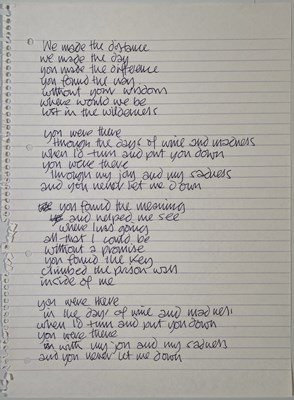 We made the distance
we made the day
you made the difference
you found the way
without your wisdom
where would we be
lost in the wilderness
you were there
through the days of wine and madness
when I'd turn and put you down
you were there
through my joy and my sadness
and you never let me down
you found the meaning
and helped me see
where I was going
all that I could be
without a promise
you found the key
climbed the prison wall
inside of me
you were there
in the days of wine and madness
when I'd turn and put you down
you were there
with my joy and my sadness
and you never let me down